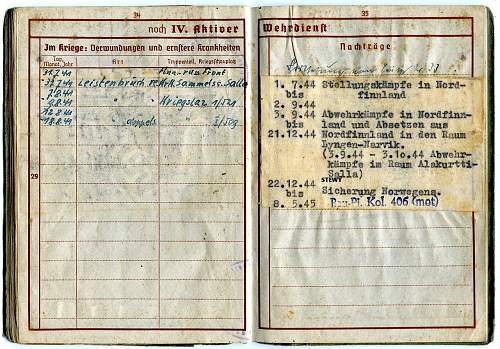 34
noch IV. Aktiver
Im Kriege: Verwundungen und ernstere Krankheiten
Tag, Monat, Jahr
Art
Truppenteil, Kriegsschauplatz
Front
Leistenbruch Sammelst. Salla
7.8.41
9.8.41 " Kriegslaz
12.8.41
18.8.41 " doppels.
29
35
Wehrdienst
Nachträge
1. 7.44 Stellungskämpfe in Nord-
bis finnland
2. 9.44
3. 9.44 Abwehrkämpfe in Nordfinn-
bis land und Absetzen aus
21.12.44 Nordfinnland in den Raum
Lyngen-Narvik.
(3.9.44 - 3.10.44 Abwehr-
kämpfe im Raum Alakurtti-
Salla)
STEWY
22.12.44
bis Sicherung Norwegens.
8. 5.45 Kol. 406 (mot)